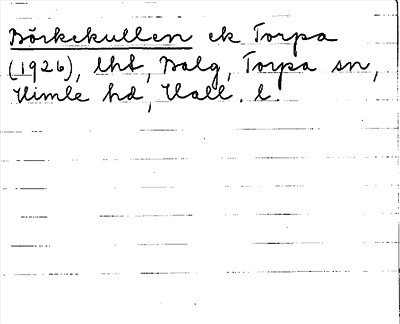 Börkekullen ek Torpa
(1926), lht, Balg, Torpa sn,
Himle hd, Hall. l.